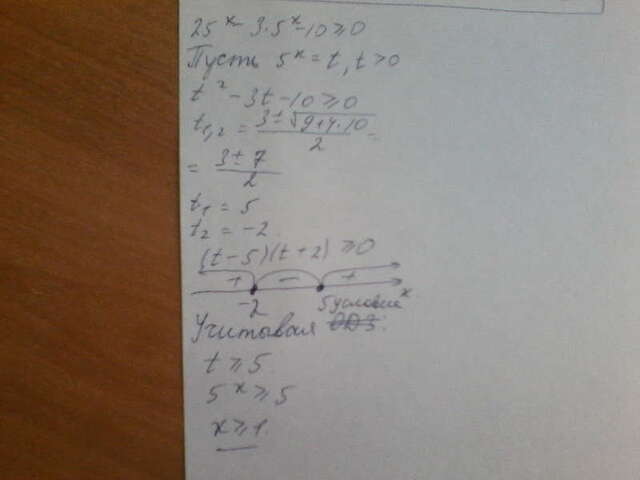 25^x - 3·5^x - 10 ≥ 0
Пусть 5^x = t, t > 0
t² - 3t - 10 ≥ 0
t₁,₂ = (3 ± √(9+4·10))/2 =
= (3 ± 7)/2
t₁ = 5
t₂ = -2
(t-5)(t+2) ≥ 0
+ - +
-2 5 x
условие
Учитывая ОДЗ:
t ≥ 5
5^x ≥ 5
x ≥ 1.